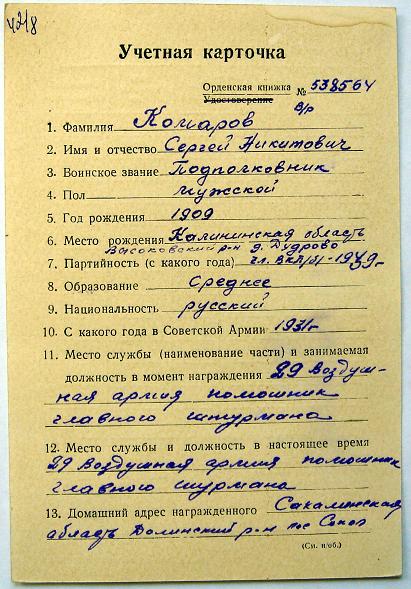 4218
Учетная карточка
Орденская книжка № 538564
Удостоверение
в/р
1. Фамилия Комаров
2. Имя и отчество Сергей Никитович
3. Воинское звание Подполковник
4. Пол мужской
5. Год рождения 1909
6. Место рождения Калининская область
Высоковский р-н д. Дудрово
7. Партийность (с какого года) чл. ВКП/б/-1939г
8. Образование Среднее
9. Национальность русский
10. С какого года в Советской Армии 1931г
11. Место службы (наименование части) и занимаемая
должность в момент награждения 29 Воздуш-
ная армия помошник
главного штурмана
12. Место службы и должность в настоящее время
29 Воздушная армия помошник
главного шурмана
13. Домашний адрес награжденного Сакалинская
область Долинский р-н пос Сокол
(См. н/об.)